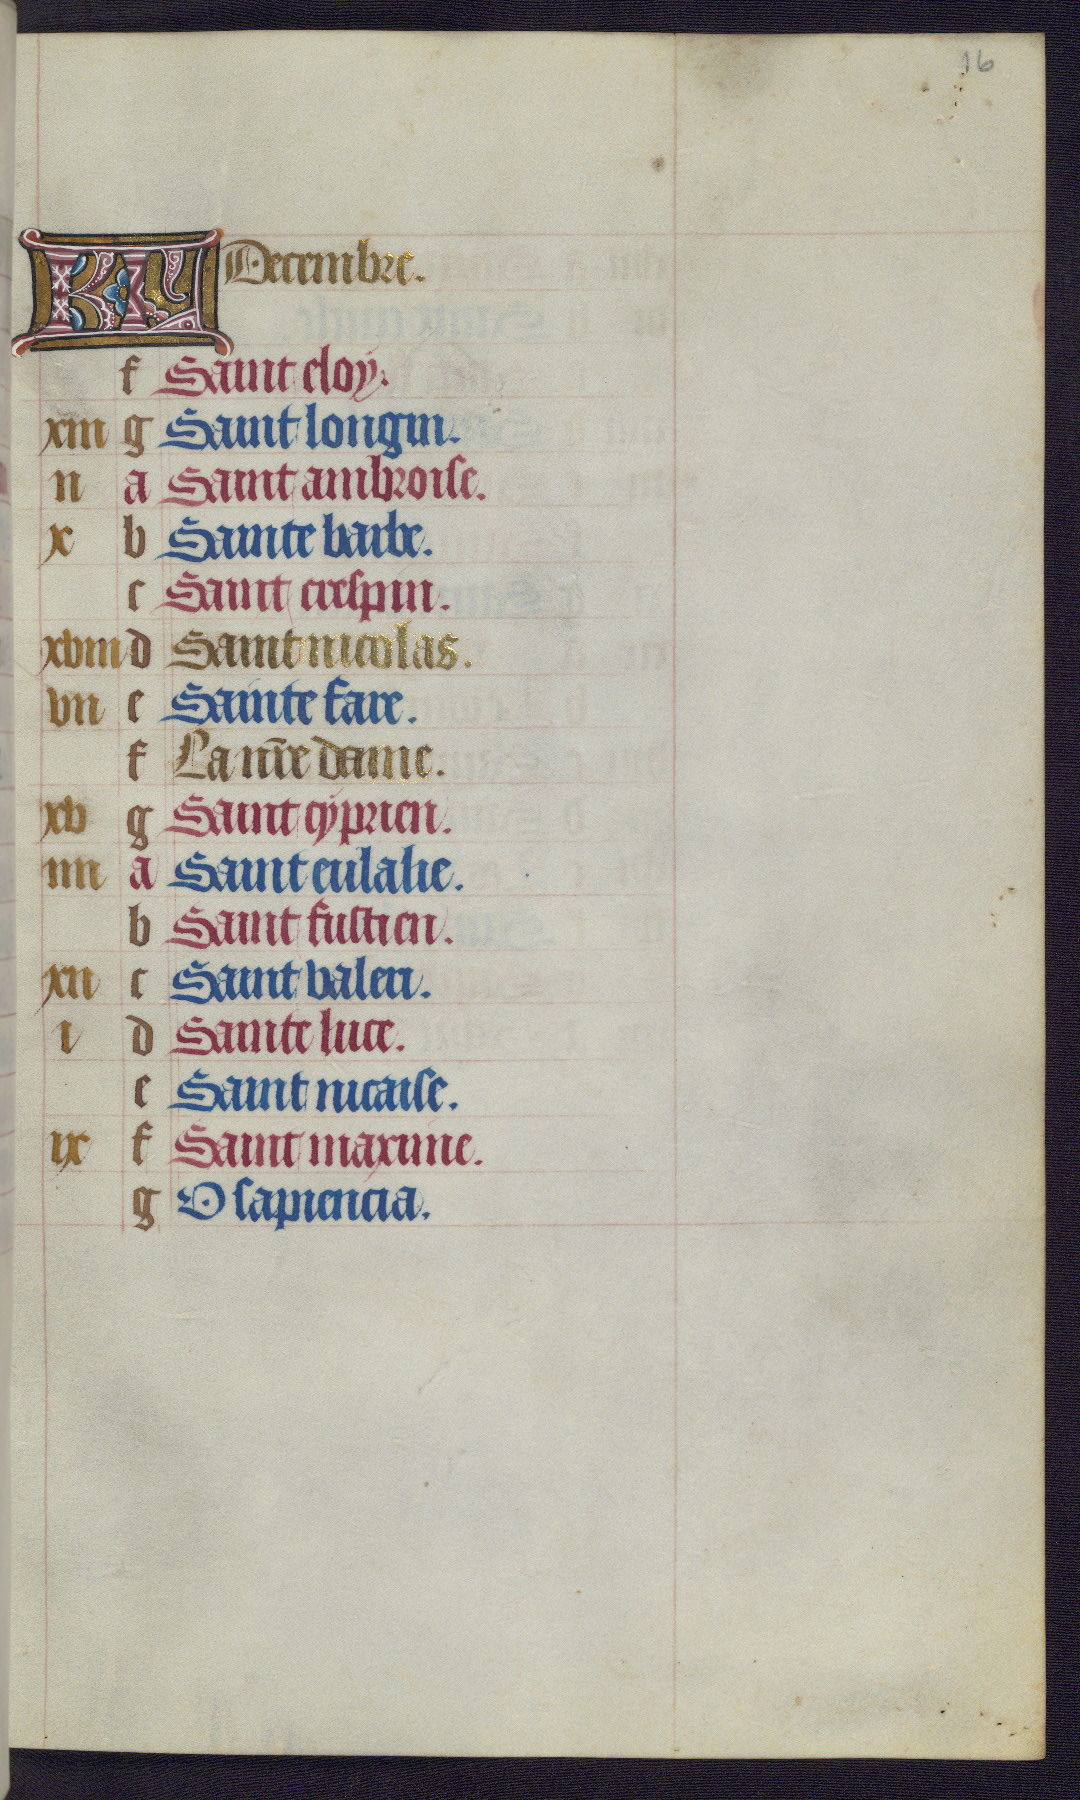 16
KL Decembre.
f Saint eloy.
xiii g Saint longin.
ii a Saint ambroise.
x b Sainte barbe.
c Saint crespin.
xviii d Saint nicolas.
vii e Sainte fare.
f La nr̄e dame.
xv g Saint cyprien.
iiii a Saint eulalie.
b Saint fuscien.
xii c Saint valeri.
i d Sainte luce.
e Saint nicaise.
ix f Saint maxime.
g O sapiencia.